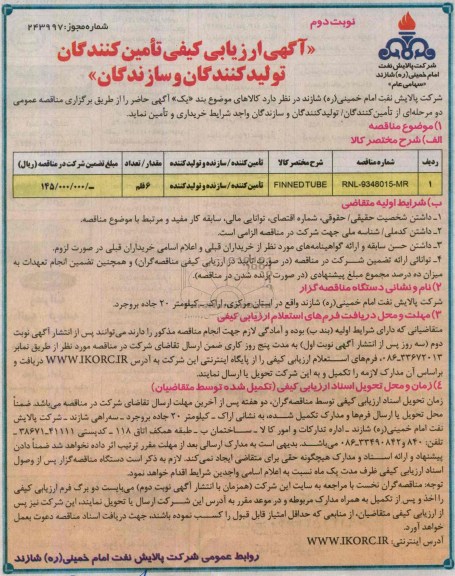 نوبت دوم
شماره مجوز: ۲۴۳۹۹۷
«آگهی ارزیابی کیفی تأمین کنندگان
تولیدکنندگان و سازندگان»
شرکت پالایش نفت
امام خمینی (ره) شازند
«سهامی عام»
شرکت پالایش نفت امام خمینی(ره) شازند در نظر دارد کالاهای موضوع بند «یک» آگهی حاضر را از طریق برگزاری مناقصه عمومی
دو مرحله‌ای از تأمین‌کنندگان/ تولیدکنندگان و سازندگان واجد شرایط خریداری و تأمین نماید.
۱) موضوع مناقصه
الف) شرح مختصر کالا
ردیف شماره مناقصه شرح مختصر کالا تأمین‌کننده / سازنده و تولیدکننده مقدار / تعداد مبلغ تضمین شرکت در مناقصه (ریال)
۱ RNL-9348015-MR FINNED TUBE تأمین‌کننده / سازنده و تولیدکننده ۶ قلم ۱۴۵/۰۰۰/۰۰۰/ــ
ب) شرایط اولیه متقاضی
۱ـ داشتن شخصیت حقیقی/ حقوقی، شماره اقتصادی، توانایی مالی، سابقه کار مفید و مرتبط با موضوع مناقصه.
۲ـ داشتن کدملی/ شناسه ملی جهت شرکت در مناقصه الزامی است.
۳ـ داشتن حسن سابقه و ارائه گواهینامه‌های مورد نظر از خریداران قبلی و اعلام اسامی خریداران قبلی در صورت لزوم.
۴ـ توانائی ارائه تضمین شرکت در مناقصه (در صورت تأیید در ارزیابی کیفی مناقصه‌گران) و همچنین تضمین انجام تعهدات به
میزان ده درصد مجموع مبلغ پیشنهادی (در صورت برنده شدن در مناقصه).
۲) نام و نشانی دستگاه مناقصه‌گزار
شرکت پالایش نفت امام خمینی(ره) شازند واقع در استان مرکزی، اراک ـ کیلومتر ۲۰ جاده بروجرد.
۳) مهلت و محل دریافت فرم‌های استعلام ارزیابی کیفی
متقاضیانی که دارای شرایط اولیه (بند ب) بوده و آمادگی لازم جهت انجام مناقصه مذکور را دارند می‌توانند پس از انتشار آگهی نوبت
دوم (سه روز پس از انتشار آگهی نوبت اول) به مدت پنج روز کاری ضمن ارسال تقاضای شرکت در مناقصه مورد نظر از طریق نمابر
۰۸۶-۳۳۶۷۲۰۱۳ فرم‌های استعلام ارزیابی کیفی را از پایگاه اینترنتی این شرکت به آدرس WWW.IKORC.IR دریافت و
براساس آن مدارک لازمه را تکمیل و به این شرکت تحویل یا ارسال نمایند.
۴) زمان و محل تحویل اسناد ارزیابی کیفی (تکمیل شده توسط متقاضیان)
زمان تحویل اسناد ارزیابی کیفی توسط مناقصه‌گران، دو هفته پس از آخرین مهلت ارسال تقاضای شرکت در مناقصه می‌باشد. ضمناً
محل تحویل یا ارسال فرم‌ها و مدارک تکمیل شده، به نشانی اراک ـ کیلومتر ۲۰ جاده بروجرد ـ سه‌راهی شازند ـ شرکت پالایش
نفت امام خمینی(ره) شازند ـ اداره تدارکات و امور کالا ـ ساختمان ب ـ طبقه همکف اتاق ۱۱۸ ـ کدپستی ۴۱۱۱۱ـ۳۸۶۷۱ـ
تلفن: ۸۴۰و۰۸۶-۳۳۴۹۰۸۴۲ می‌باشد. بدیهی است به مدارک ارسالی بعد از مهلت مقرر ترتیب اثر داده نخواهد شد ضمناً دادن
پیشنهاد و ارائه اسناد و مدارک هیچگونه حقی برای متقاضی ایجاد نمی‌کند. لازم به ذکر است دستگاه مناقصه‌گزار پس از وصول
اسناد ارزیابی کیفی ظرف مدت یک ماه نسبت به اعلام اسامی واجدین شرایط اقدام خواهد نمود.
توجه: مناقصه‌گران نخست با مراجعه به سایت این شرکت (همزمان با انتشار آگهی نوبت دوم) می‌بایست دو برگ فرم ارزیابی کیفی
را اخذ و پس از تکمیل به همراه مدارک مربوطه و در موعد مقرر به آدرس این شرکت ارسال یا تحویل نمایند، این شرکت نیز پس
از ارزیابی کیفی متقاضیان، از منابعی که حداقل امتیاز قابل قبول را کسب نموده باشند، جهت دریافت اسناد مناقصه دعوت بعمل
خواهد آورد.
آدرس اینترنتی: WWW.IKORC.IR
روابط عمومی شرکت پالایش نفت امام خمینی (ره) شازند